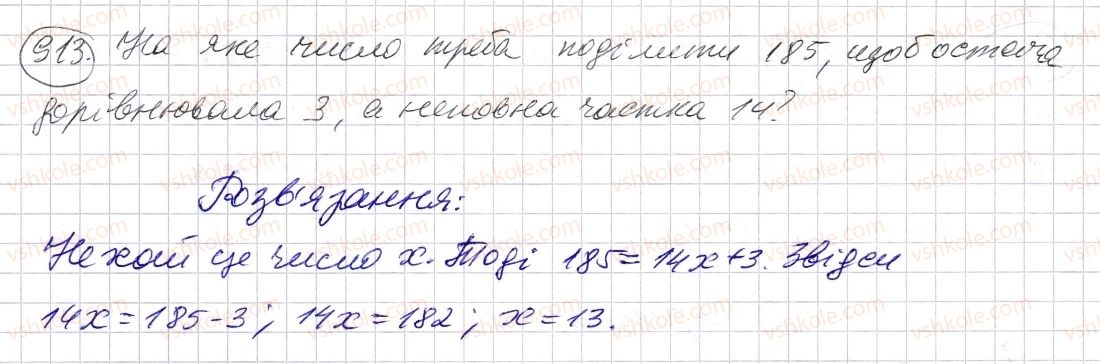 913. На яке число треба поділити 185, щоб остача
дорівнювала 3, а неповна частка 14?
Розв'язання:
Нехай це число x. Тоді 185=14x+3. Звідси
14x=185-3; 14x=182; x=13.